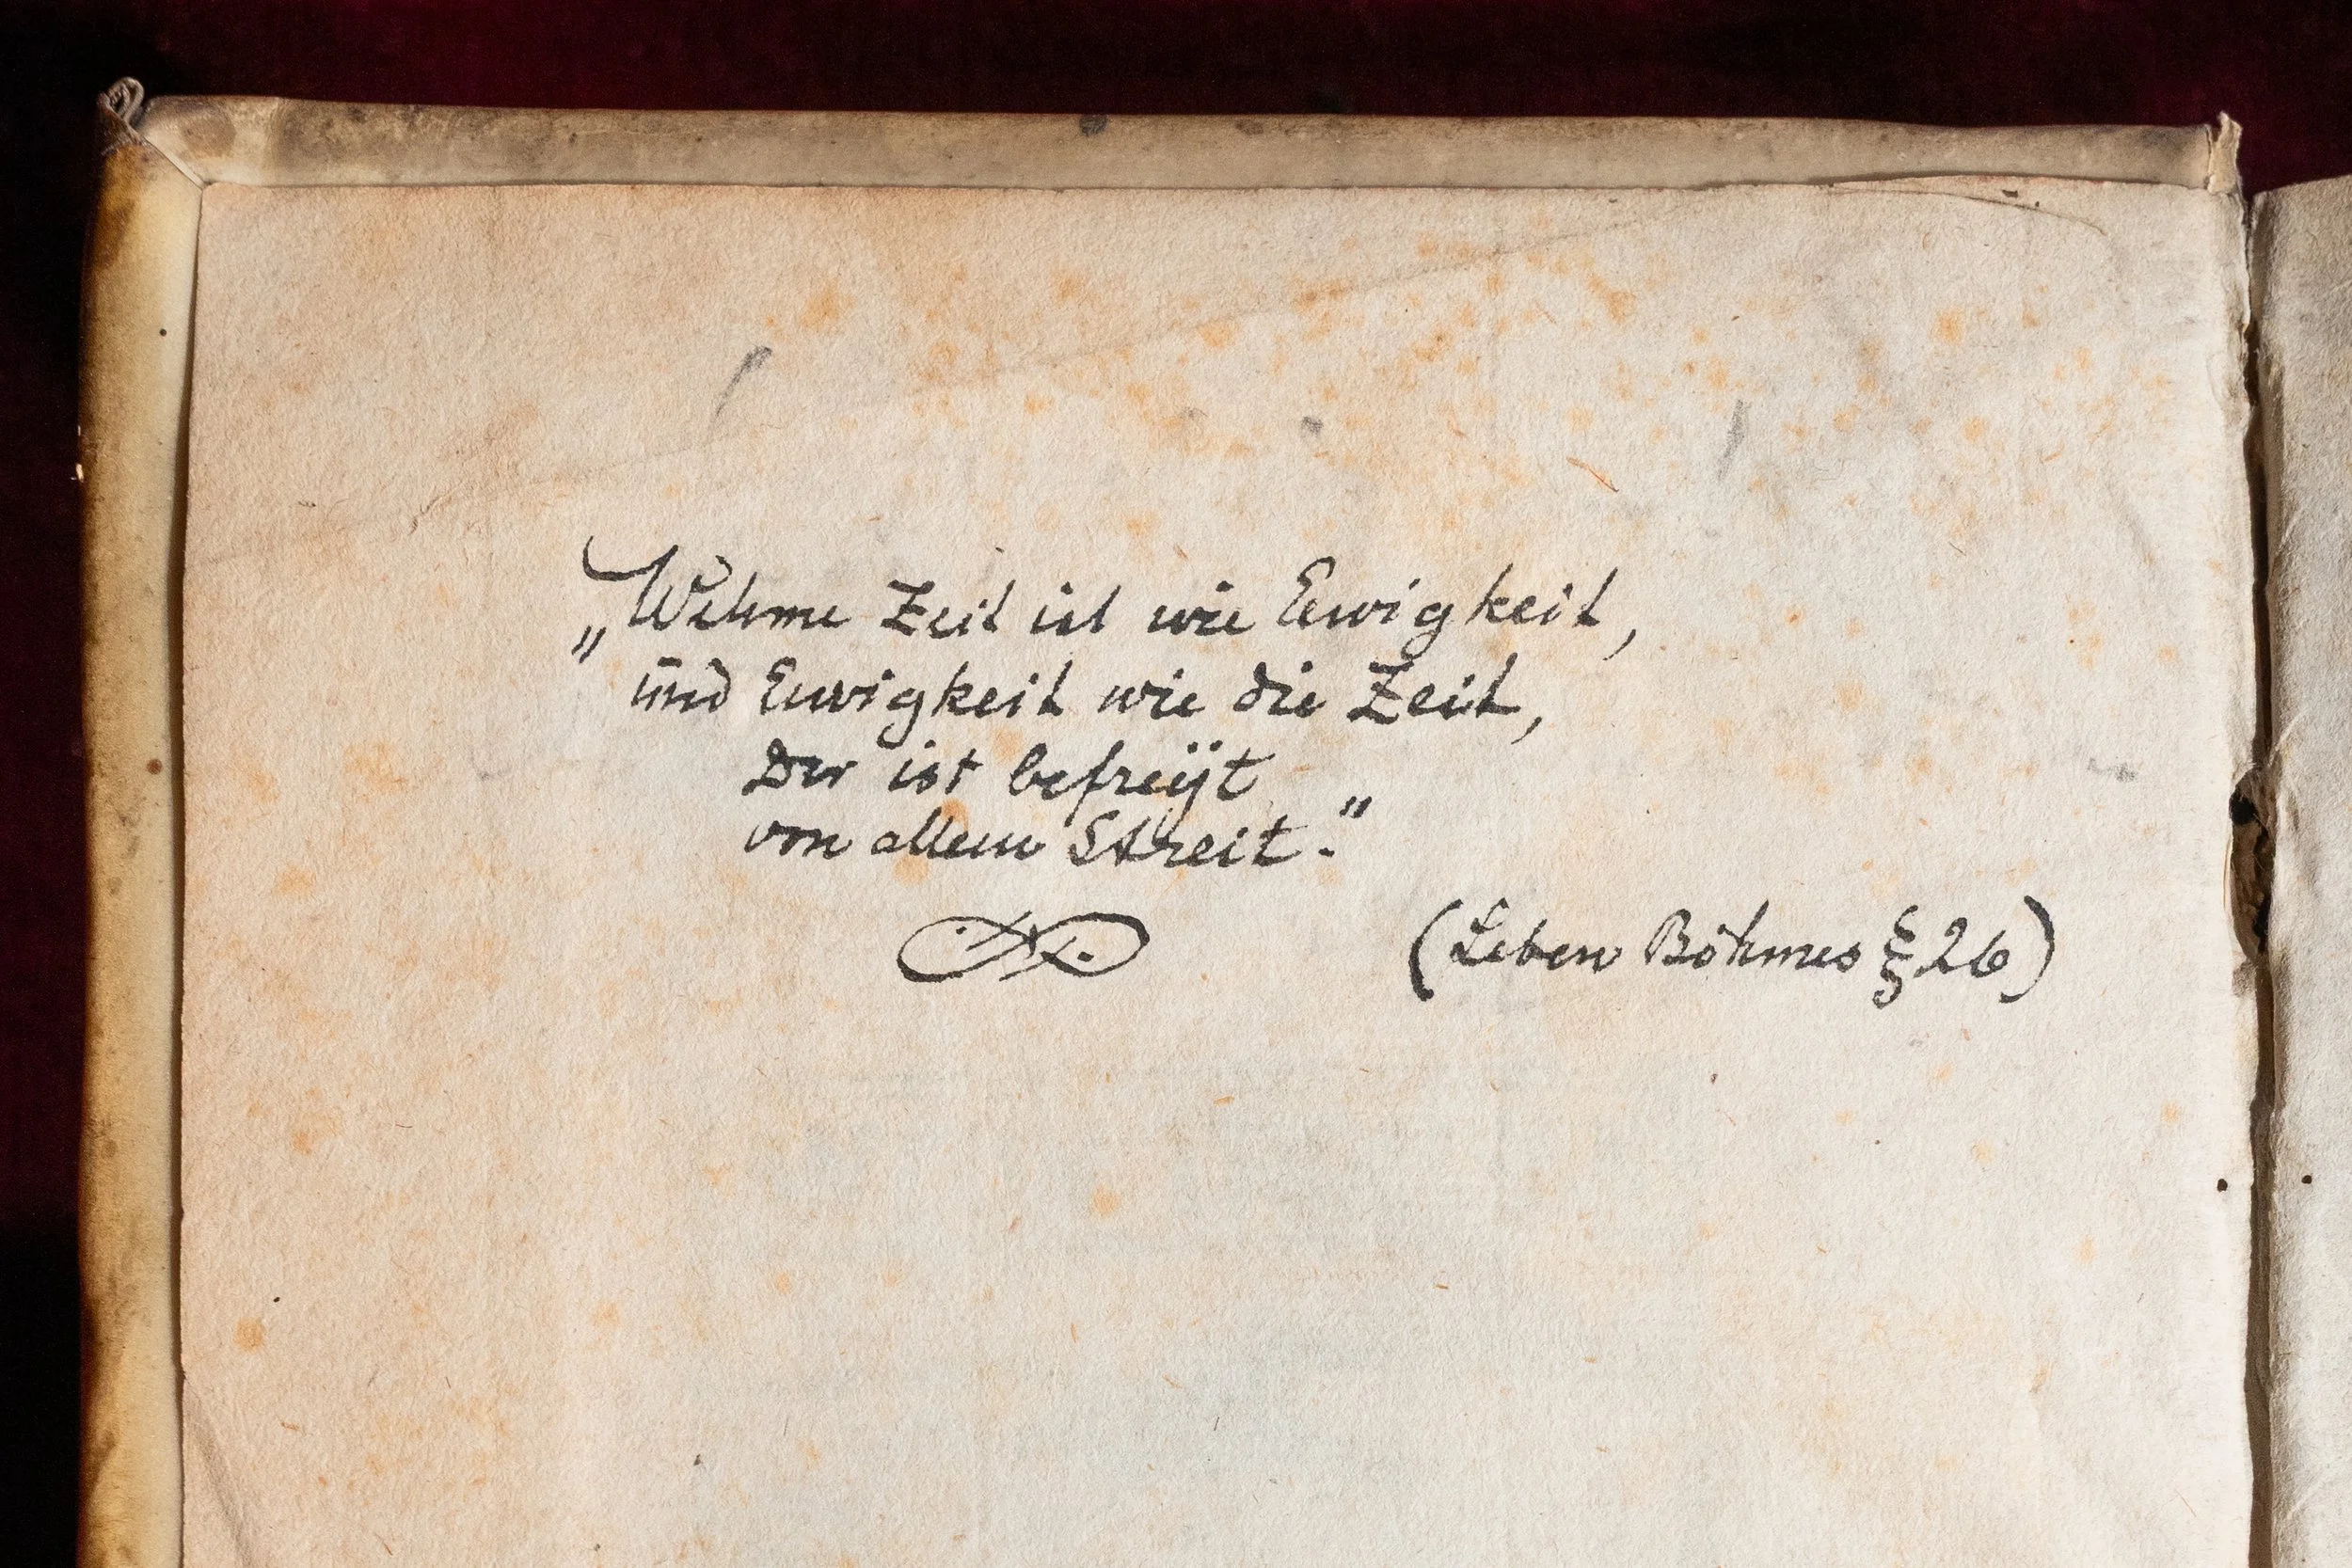 „Wehme Zeit ist wie Ewigkeit,
und Ewigkeit wie die Zeit,
Der ist befreÿt
von allem Streit."
(Leben Böhmes § 26)